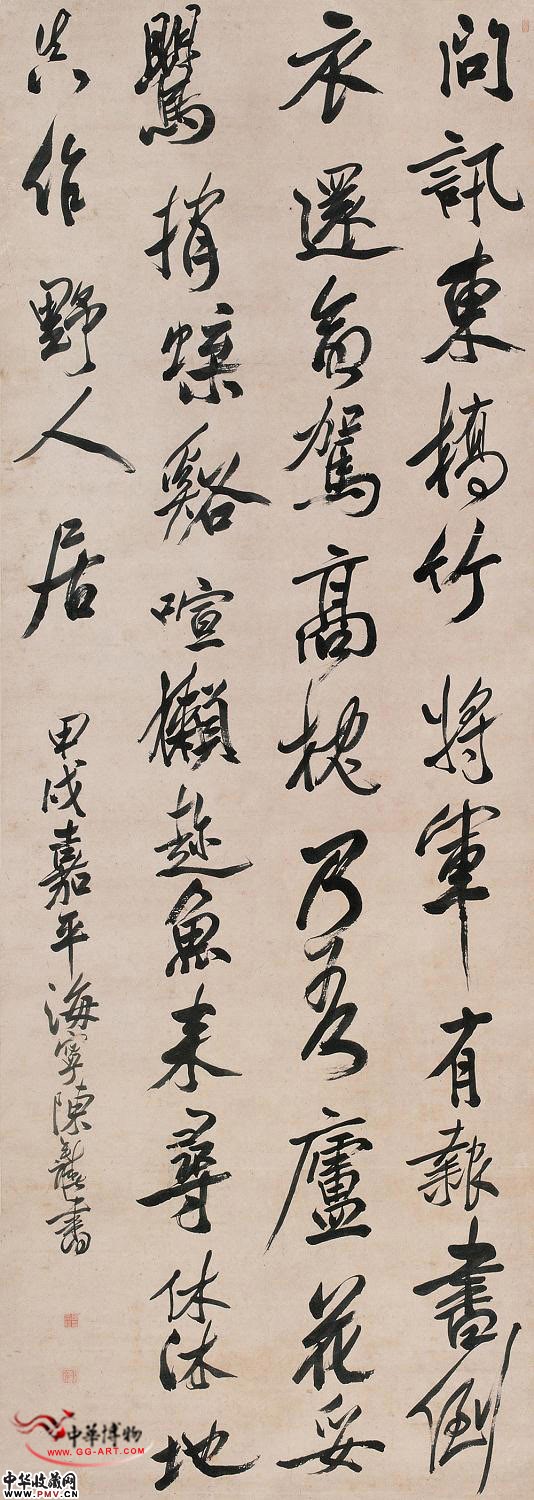 問訊東橋竹將軍有報書倒
衣還命駕高枕乃吾廬花妥
鸎捎蝶谿喧獺趂魚来尋休沐地
真作野人居
甲戌嘉平海寧陳奕禧書
中華博物
WWW.GG-ART.COM
中华收藏网
WWW.PMV.CN